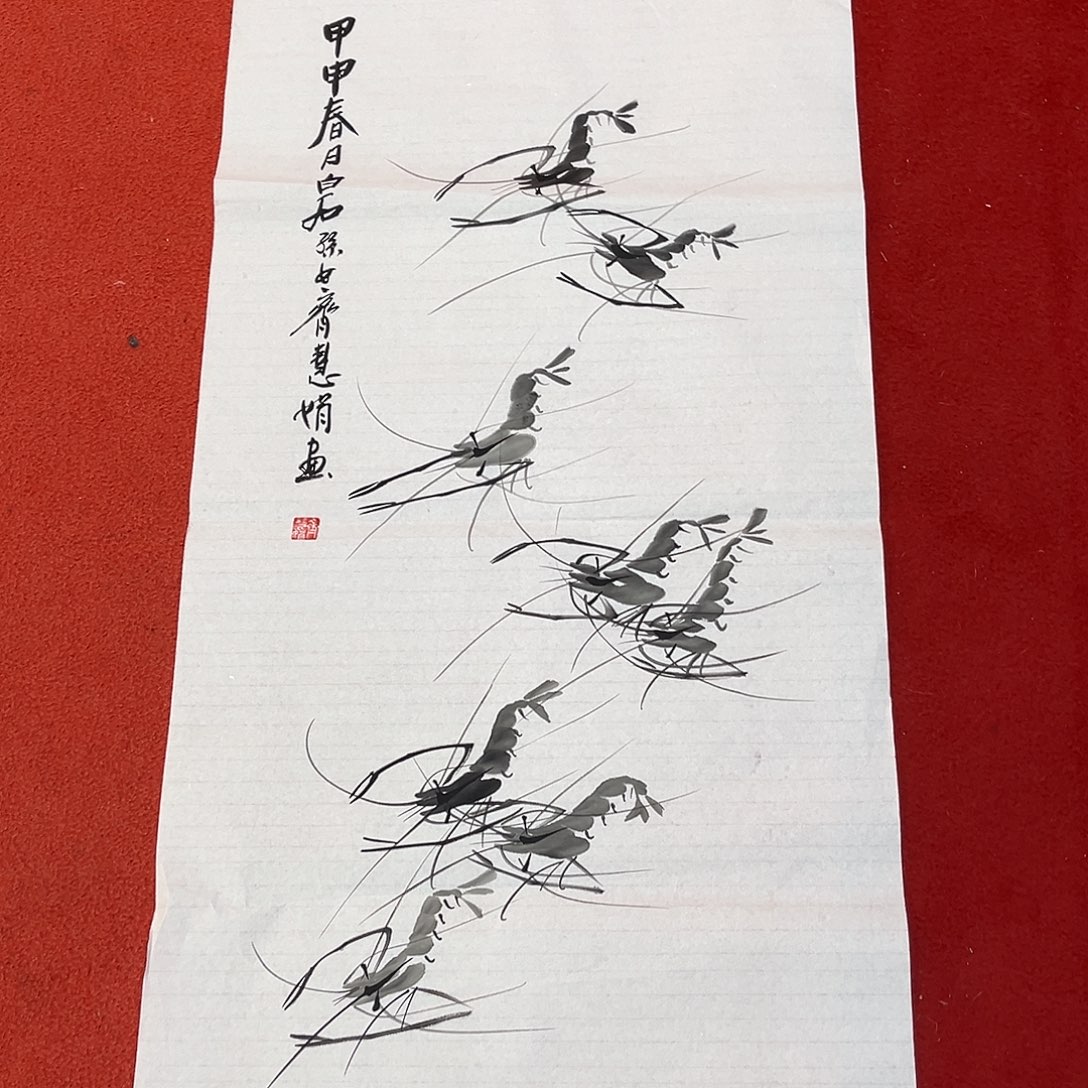 甲申春日白石孫女齊慧娟畫